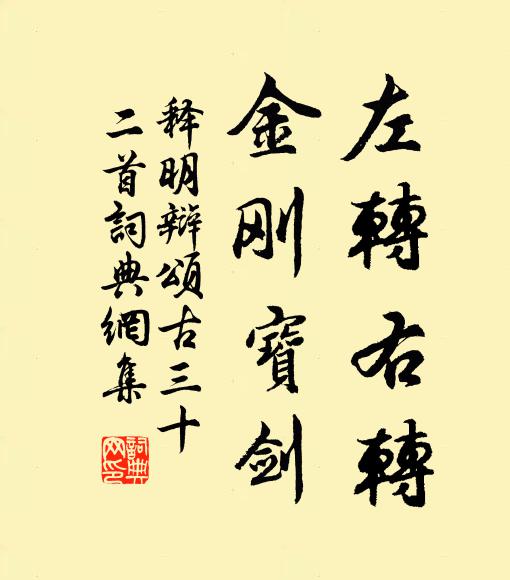 左轉右轉
金刚寶劍
释明辯頌古三十
二首詞典網集
詞典網印